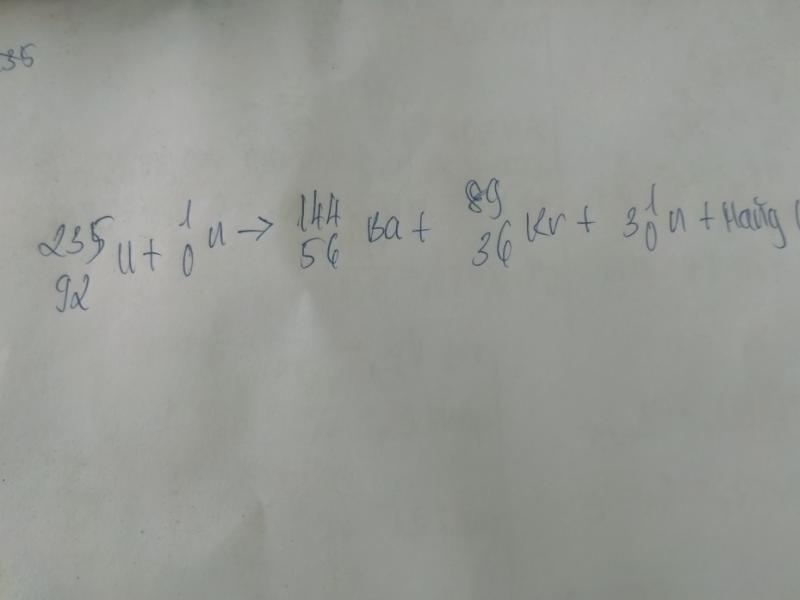 35
²³⁵₉₂U + ¹₀n → ¹⁴⁴₅₆Ba + ⁸⁹₃₆Kr + 3¹₀n + Найд